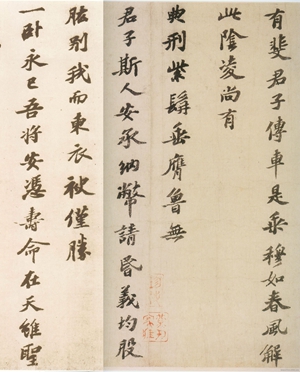 有斐君子傳車是乘穆如春風解
此陰凌尚有
典刑紫髯垂膺魯無
君子斯人安承納幣請昏義均股
肱別我而東衣袂僅勝
一臥永已吾將安憑壽命在天雖聖